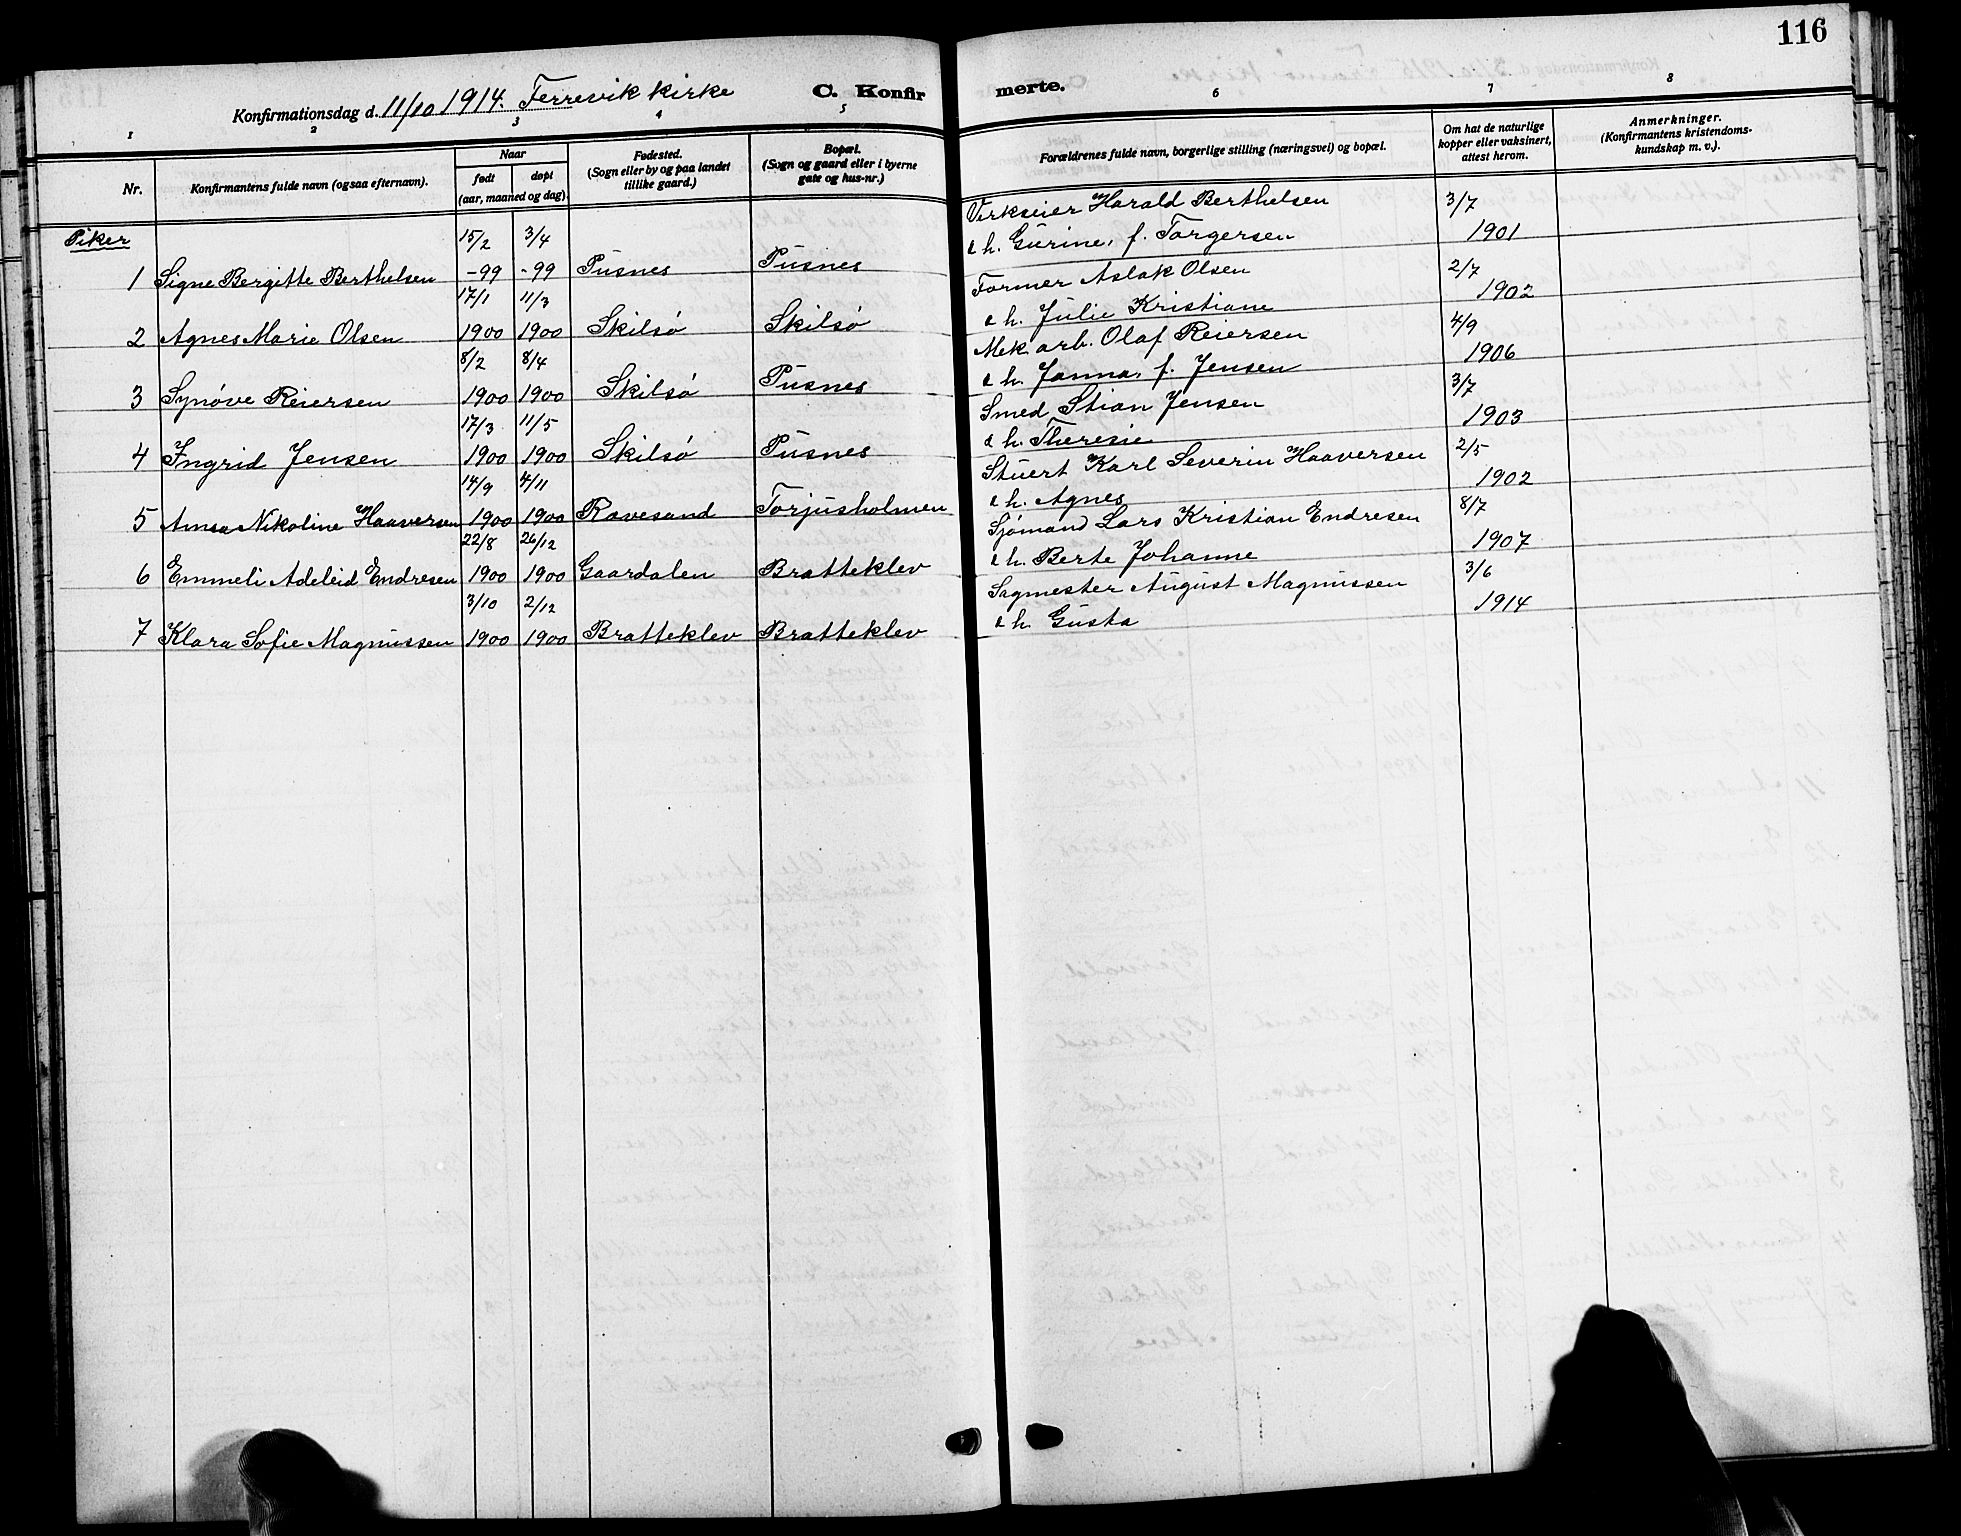 116
Konfirmationsdag d. 11/10 1914. Færevik kirke C. Konfirmerte.
1 2 3 4 5 6 7 8
Nr.
Konfirmantens fulde navn (ogsaa efternavn).
Naar
født døpt
(aar, maaned og dag).
Fødested.
(Sogn eller by og paa landet
tillike gaard.)
Bopæl.
(Sogn og gaard eller i byerne
gate og hus-nr.)
Forældrenes fulde navn, borgerlige stilling (næringsvei) og bopæl.
Om hat de naturlige
kopper eller vaksinert,
attest herom.
Anmerkninger.
(Konfirmantens kristendoms-
kundskap m. v.).
Piker
15/2 3/4 Verkseier Harald Berthelsen 3/7
1 Signe Bergitte Berthelsen -99 -99 Pusnes Pusnes & h. Gurine, f. Torgersen 1901
17/1 11/3 Former Aslak Olsen 2/7
2 Agnes Marie Olsen 1900 1900 Skilsø Skilsø & h. Julie Kristiane 1902
8/2 8/4 Mek. arb. Olaf Reiersen 4/9
3 Synøve Reiersen 1900 1900 Skilsø Pusnes & h. Janna, f. Jensen 1906
17/3 11/5 Smed Stian Jensen 3/7
4 Ingrid Jensen 1900 1900 Skilsø Pusnes & h. Theresie 1903
14/9 4/11 Stuert Karl Severin Haaversen 2/5
5 Anna Nikoline Haaversen 1900 1900 Ravesand Torjusholmen & h. Agnes 1902
22/8 26/12 Sjømand Lars Kristian Endresen 8/7
6 Emmeli Adeleid Endresen 1900 1900 Gaardalen Bratteklev & h. Berte Johanne 1907
3/10 2/12 Sagmester August Magnussen 3/6
7 Klara Sofie Magnussen 1900 1900 Bratteklev Bratteklev & h. Gusta 1914